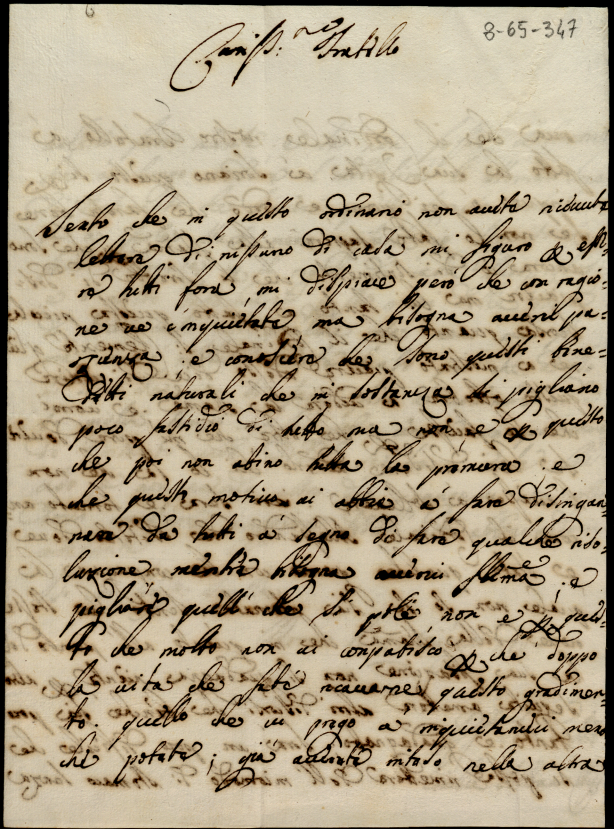 8-65-347
Cariss:mo Fratello
Sento che in questo ordinario non avete ricevuta
lettere di nissuno di casa mi figuro p esse-
re tutti fora mi dispiace però che con ragio-
ne ve cinquietate ma bisogna averci pa-
zienza e conoscere che sono questi bene-
detti naturali che in sostanza si pigliano
poco fastidio di tutto ma non e p questo
che poi non abino tutta la premura e
che questi motivi vi abbia a fare disingan
nare da tutti a segno di fare qualche riso-
luzione mentre bisogna averci flema e
pigliare quello che si pole non e p ques-
to che molto non vi conpatisco p che doppo
la vita che fate ricavarne questo gradimen-
to quello che vi prego a inquietarvici meno
che potete; già averete inteso nella altra